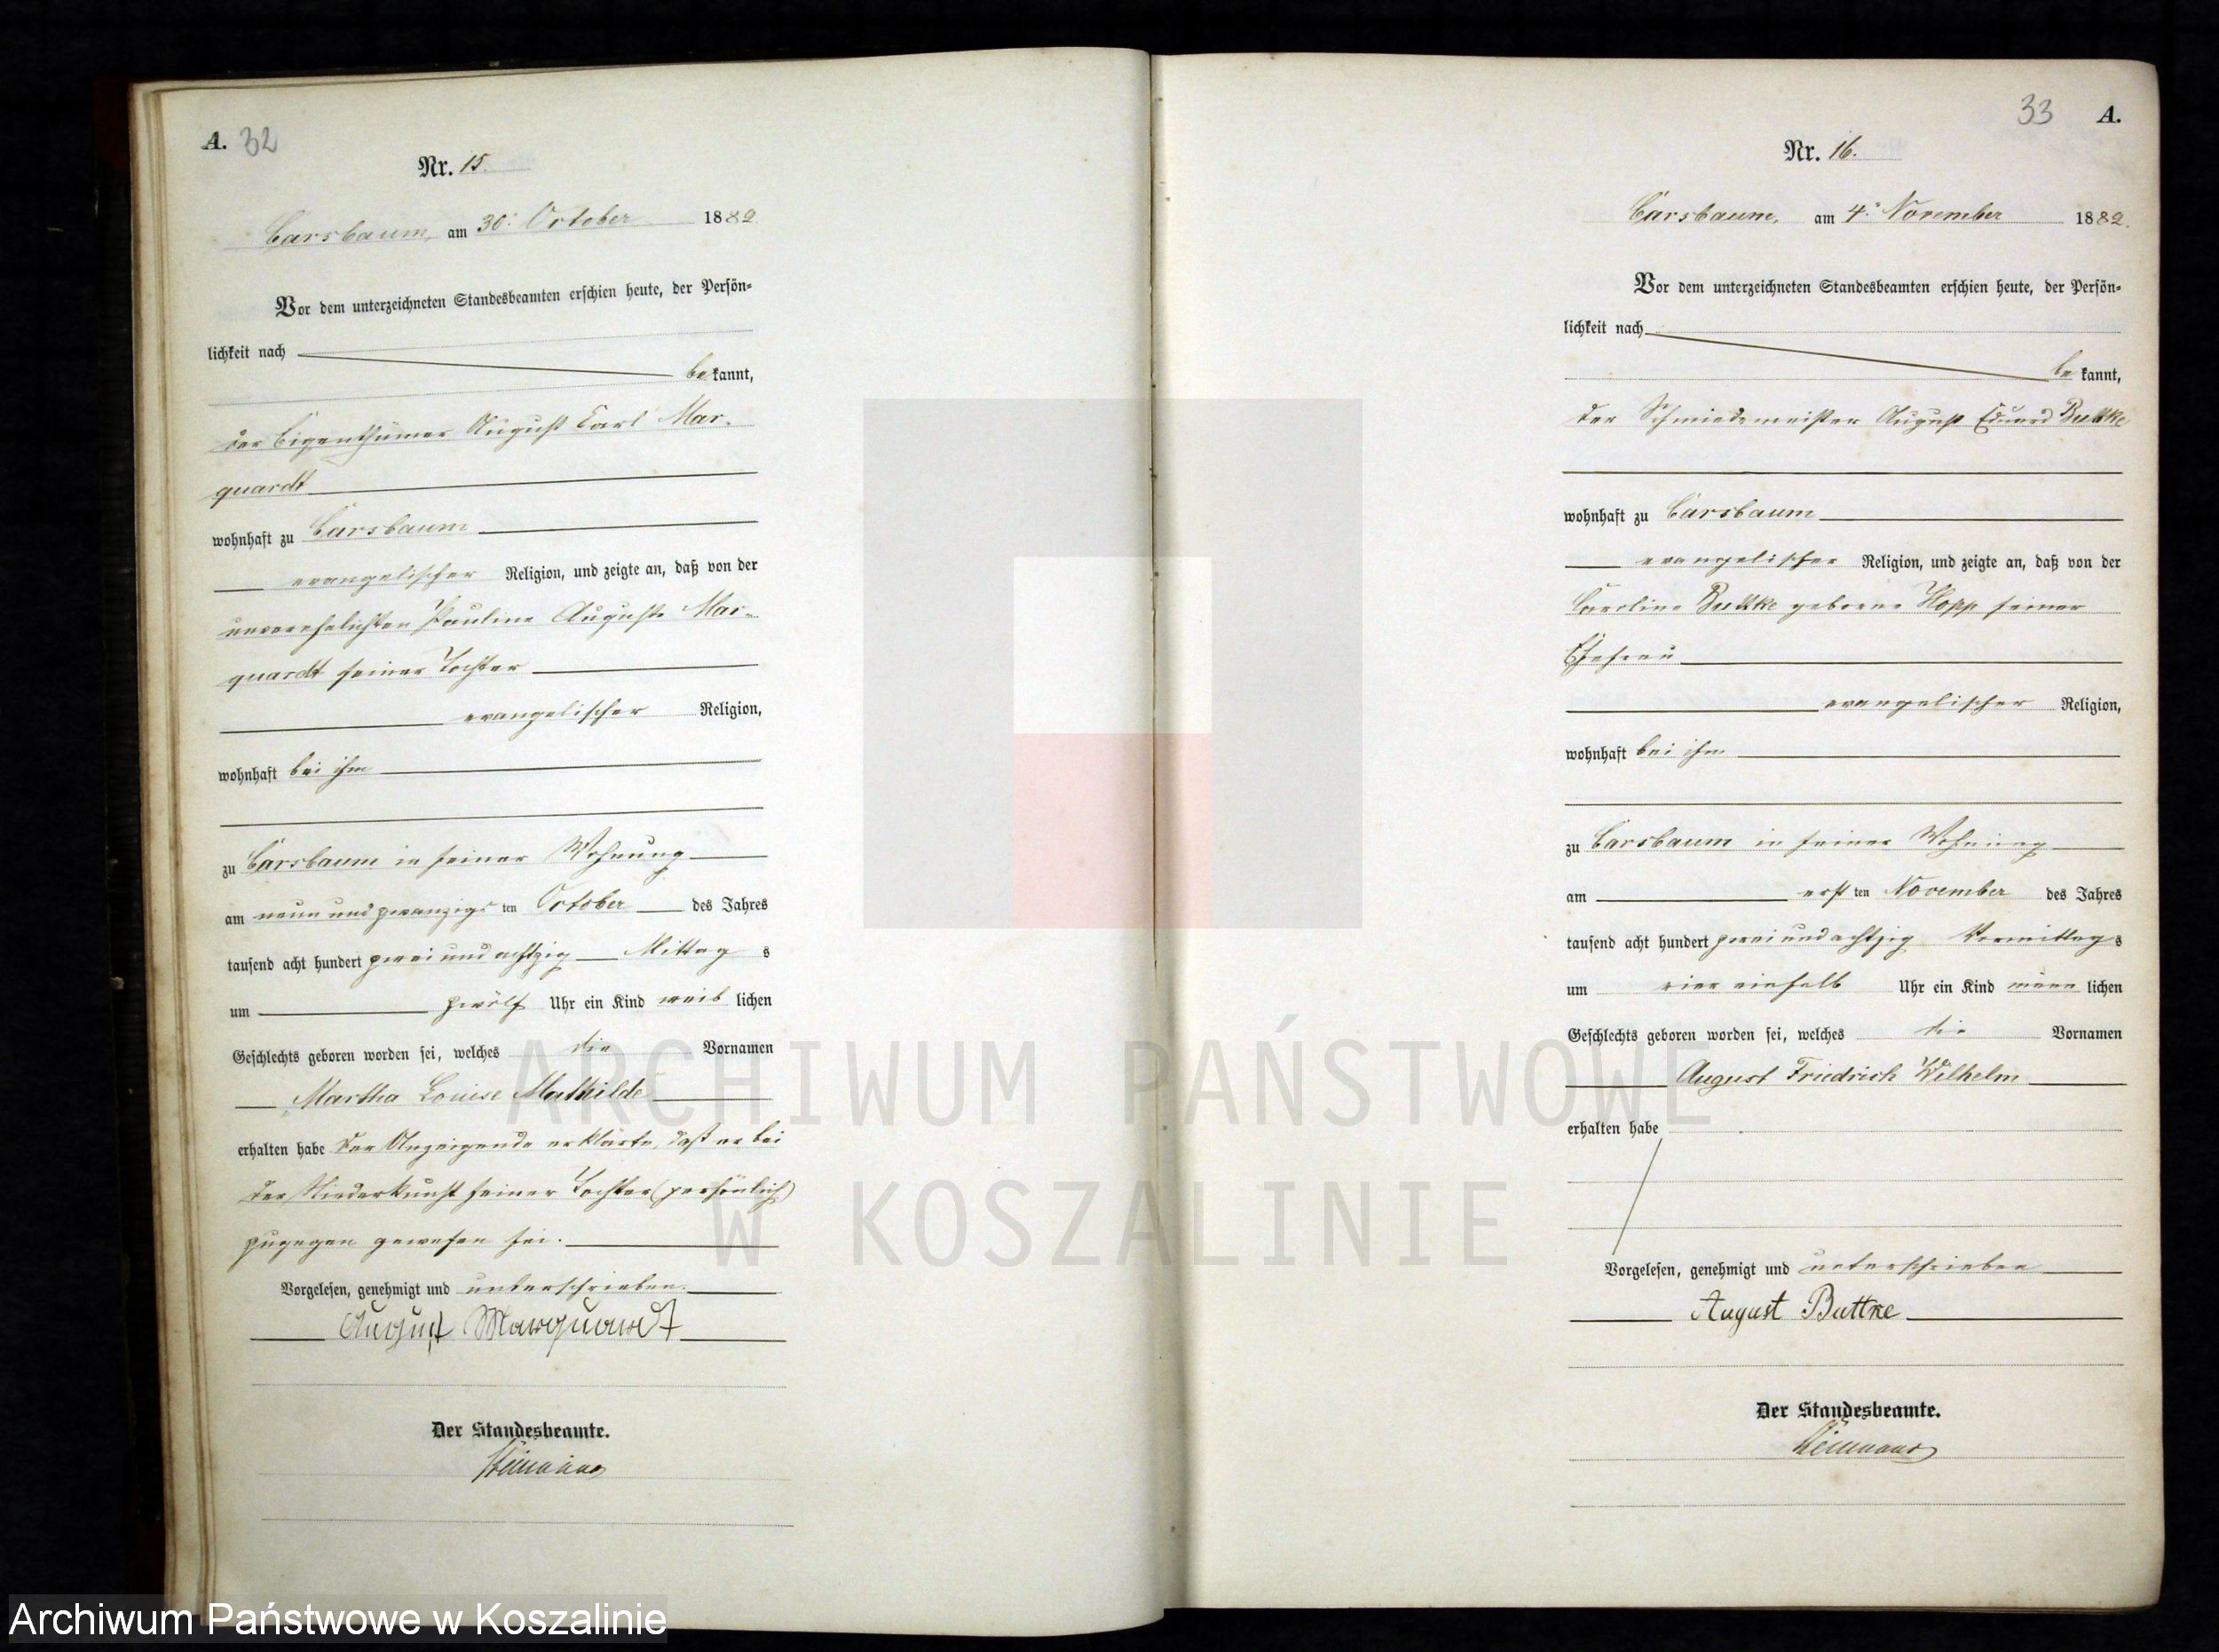 A. 32
Nr. 15.
Carsbaum, am 30. October 1882
Vor dem unterzeichneten Standesbeamten erschien heute, der Persön-
lichkeit nach
bekannt,
der Eigenthümer August Carl Mar-
quardt
wohnhaft zu Carsbaum
evangelischer Religion, und zeigte an, daß von der
unverehelichten Pauline Auguste Mar-
quardt seiner Tochter
evangelischer Religion,
wohnhaft bei ihm
zu Carsbaum in seiner Wohnung
am neun und zwanzigsten October des Jahres
tausend acht hundert zwei und achtzig Mittags
um zwölf Uhr ein Kind weiblichen
Geschlechts geboren worden sei, welches die Vornamen
Martha Louise Mathilde
erhalten habe Der Anzeigende erklärte, daß er bei
der Niederkunft seiner Tochter (persönlich)
zugegen gewesen sei.
Vorgelesen, genehmigt und unterschrieben.
August Marquardt
Der Standesbeamte.
33 A.
Nr. 16.
Carsbaum, am 4. November 1882.
Vor dem unterzeichneten Standesbeamten erschien heute, der Persön-
lichkeit nach
bekannt,
der Schmiedemeister August Eduard Buttke
wohnhaft zu Carsbaum
evangelischer Religion, und zeigte an, daß von der
Caroline Buttke geborene Hopp seiner
Ehefrau
evangelischer Religion,
wohnhaft bei ihm
zu Carsbaum in seiner Wohnung
am ersten November des Jahres
tausend acht hundert zwei und achtzig Vormittags
um vier einhalb Uhr ein Kind männlichen
Geschlechts geboren worden sei, welches die Vornamen
August Friedrich Wilhelm
erhalten habe
Vorgelesen, genehmigt und unterschrieben
August Buttke
Der Standesbeamte.
ARCHIWUM PAŃSTWOWE
W KOSZALINIE
Archiwum Państwowe w Koszalinie